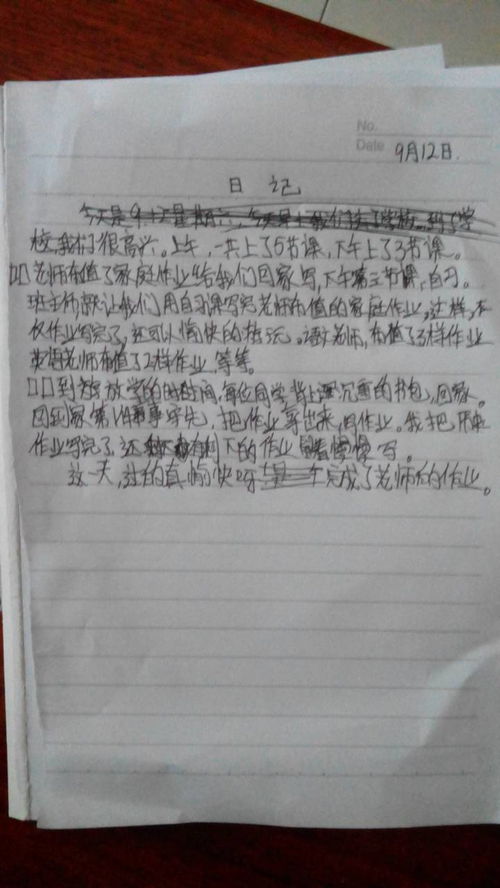 No.
Date 9月12日.
日 记
今天是9.12星期六,今天早上我们去了学校。到了学
校,我们很高兴。上午,一共上了5节课,下午上了3节课。
老师布值了家庭作业给我们回家写,下午第三节课,自习。
班主师就让我们用自习课写完老师布值的家庭作业。这样,不
仅作业写完了,还可以愉快的玩。语文老师,布值了3样作业
英语老师布值了2样作业,等等。
到放学的时间,每位同学背上沉重的书包,回家。
回到家第1件事写先,把作业拿出来,作业。我把
作业写完了,还有剩下的作业慢慢写。
这一天,过的真愉快呀 完成了老师的作业。